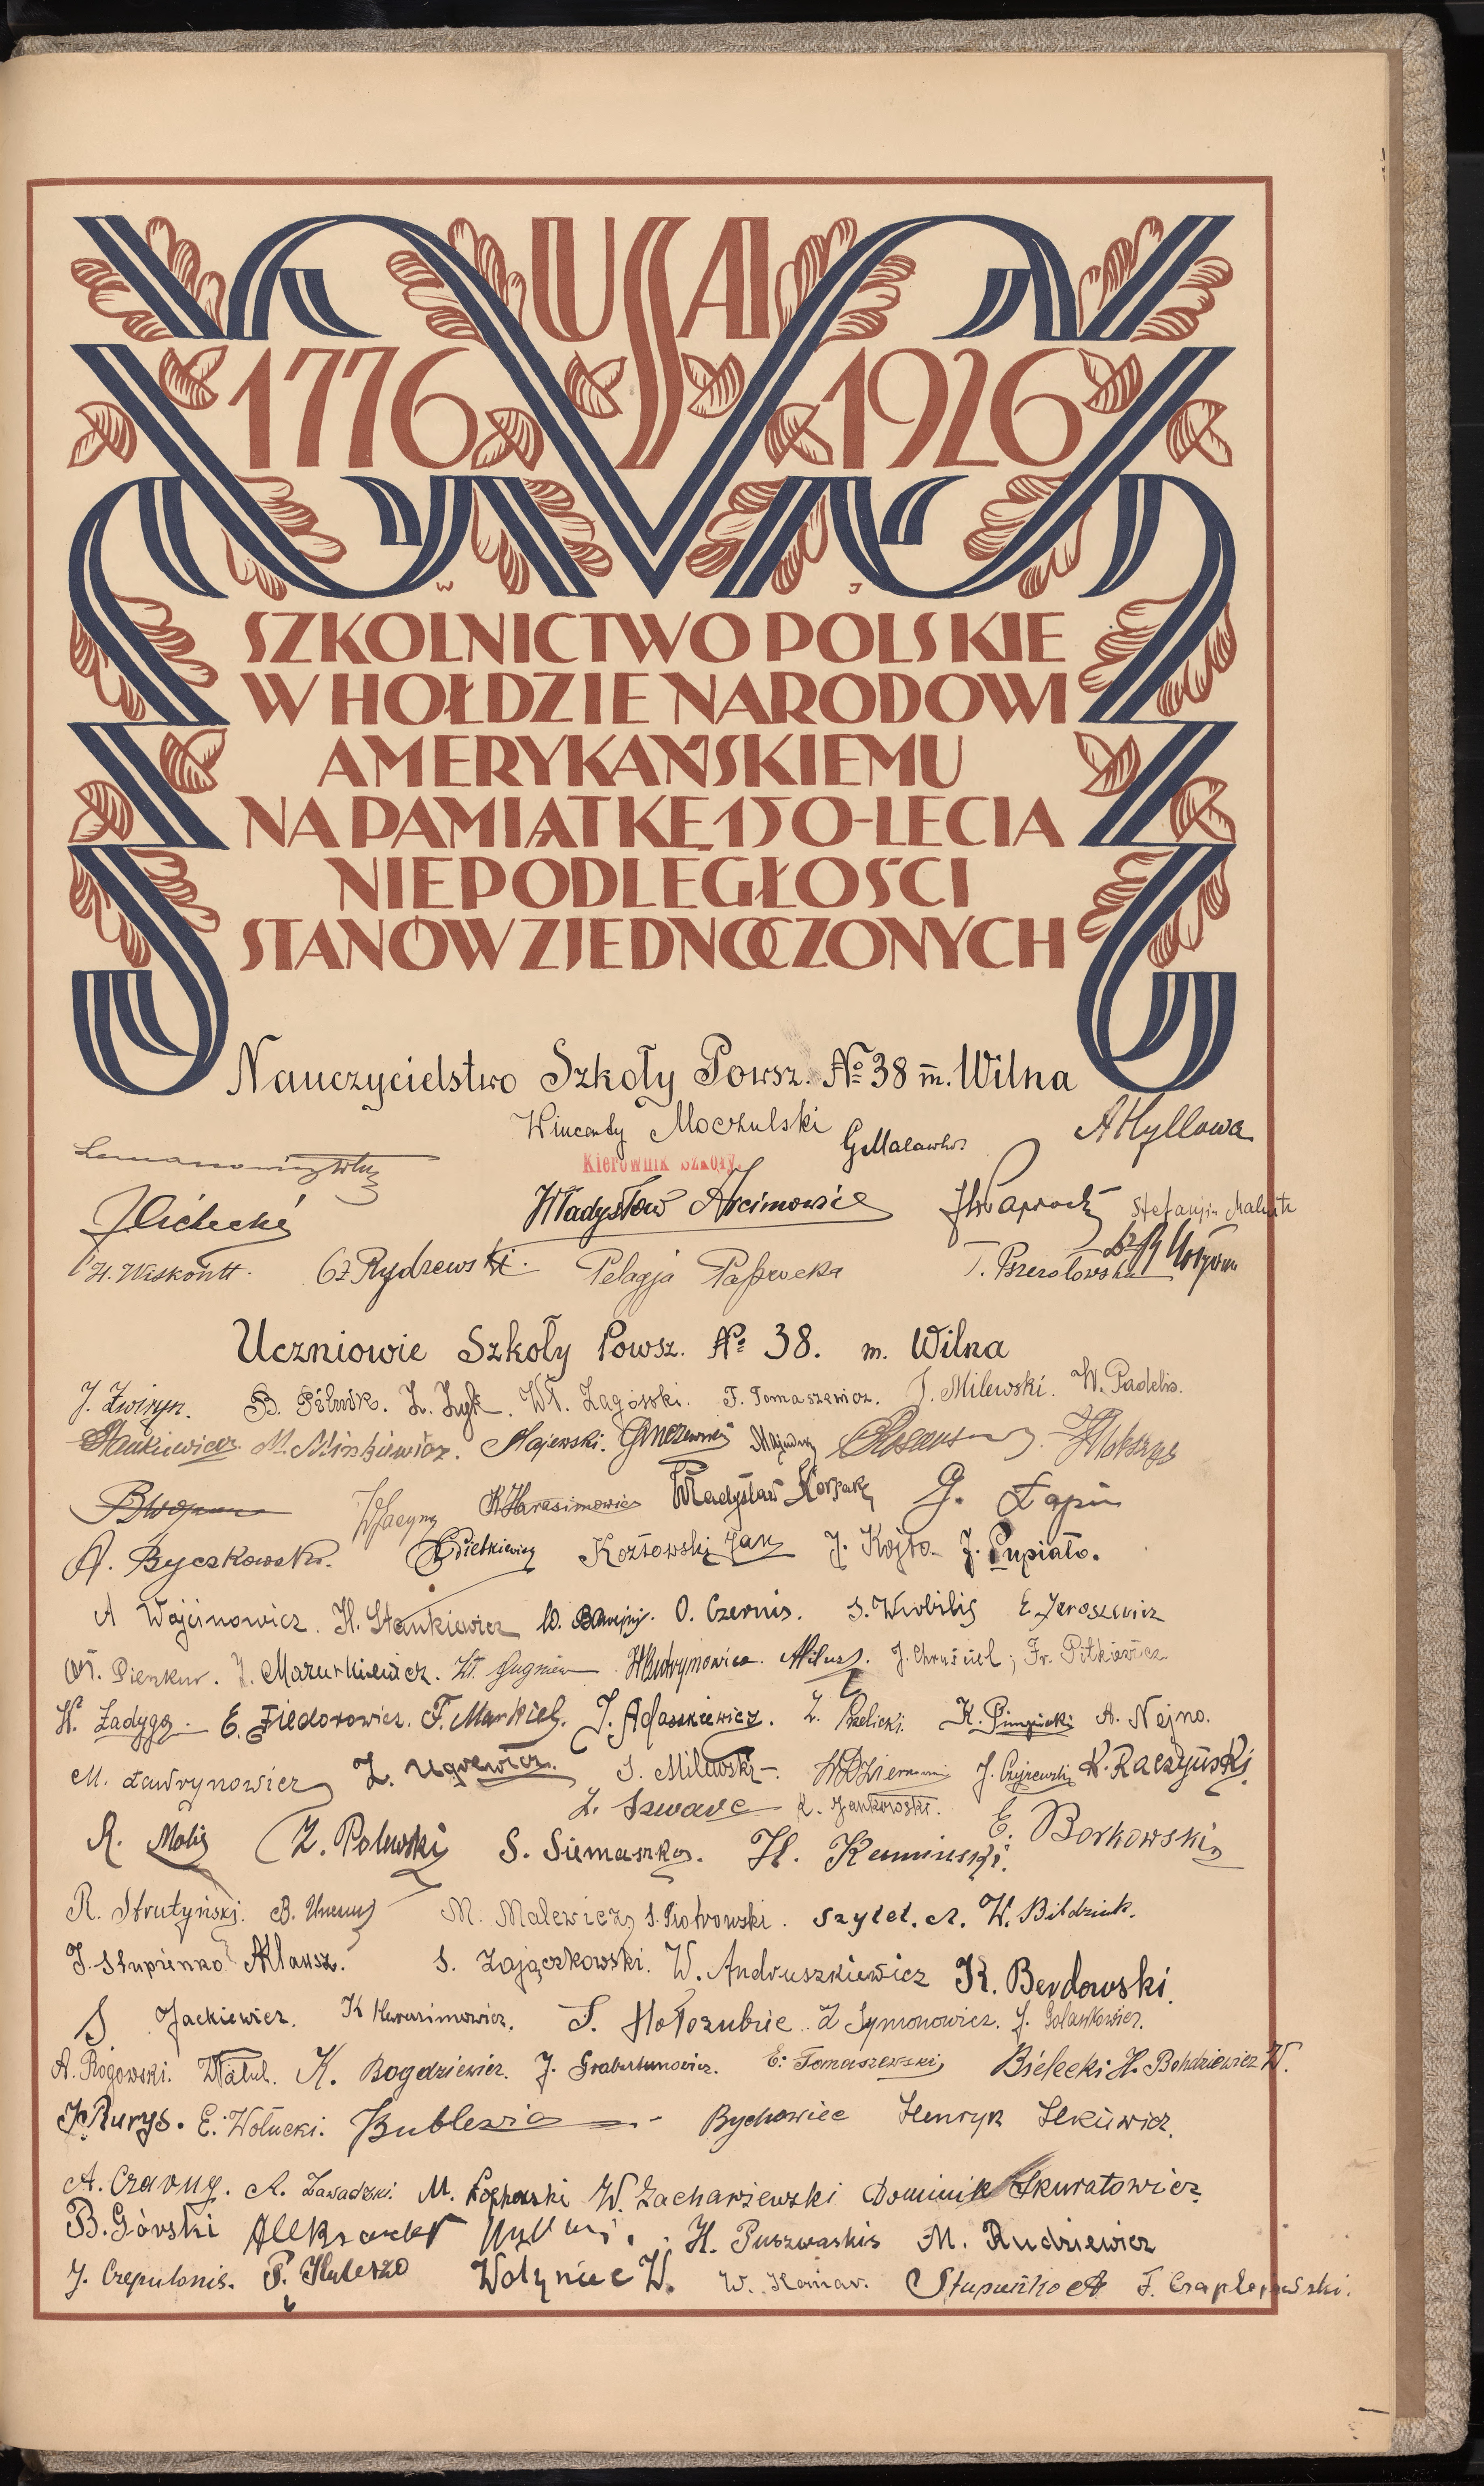 USA
1776 1926
W J
SZKOLNICTWO POLSKIE
W HOŁDZIE NARODOWI
AMERYKAŃSKIEMU
NA PAMIĄTKĘ 150-LECIA
NIEPODLEGŁOŚCI
STANÓW ZJEDNOCZONYCH
Nauczycielstwo Szkoły Powsz. № 38 m. Wilna
Wincenty Moczulski A Hyllowa
Kierownik Szkoły.
Władysław Arcimowicz Stefanja
H. Wiskontt. Cz Rydzewski. Pelagja
Uczniowie Szkoły Powsz. № 38. m. Wilna
J. Zwiryn. B. Pilnik. Z. Zyk. Wł. Zagórski. F. Tomaszewicz. J. Milewski. W. Padelis.
Stankiewicz. M. Minkiewicz. Majewski.
K Harasimowicz Władysław Korsak G. Łapin
Pietkiewicz Kozłowski Jan J. Kojto. J. Pupiało.
A Wojcinowicz. H. Stankiewicz O. Czernis. S. Wirbilis E. Jaroszewicz
J. Mazurkiewicz. J. Chruściel; Fr. Pitkiewicz
W. Zadyga. E. Fiedorowicz. F. Markiel. J. Adaszkiewicz. Z. Bielicki. K. Pimpicki A. Nejno.
M. Ławrynowicz Z. Ugrewicz. S. Milewski. J. Czyżewski K. Raczyński.
Z. Szwarc K. Jankowski.
R. Molis Z. Polewski S. Siemaszko. H. Kamiński. E. Borkowski
R. Strutyński. M. Malewicz S. Piotrowski. Szyłel. A. W. Bildziuk.
J. Słupienko A Klausz. S. Zajączkowski. W. Andruszkiewicz K. Berdowski.
S Jackiewicz. K Harasimowicz. S. Hołozubiec. Z Symonowicz. J. Golankowicz.
A. Rogowski. K. Bogdziewicz. J. E. Tomaszewski Bielecki H. Bohdziewicz W.
J. Rurys. E. Wołucki. Bublewicz Bychowiec Henryk Ilkiewicz.
A. Czarny. A. Zawadzki. M. W. Zacharzewski Dominik Skuratowicz
B. Górski Aleksander H. Puszwaskis M. Rudziewicz
J. Czepulonis. P. Huleszo Wołyniec W. W. Komar. Słupieńko A F. Czaplejewski.